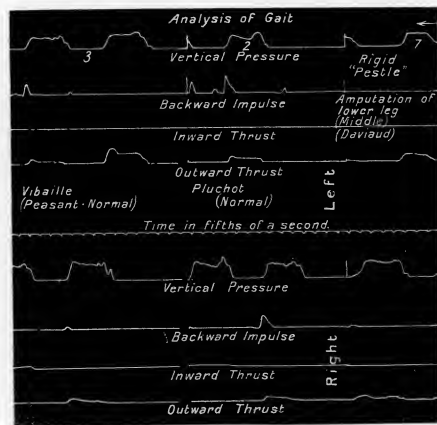 Analysis of Gait
3
2
7
Vertical Pressure
Rigid
"Pestle"
Backward Impulse
Amputation of
lower leg
(Middle)
(Daviaud)
Inward Thrust
Outward Thrust
Vibaille
(Peasant-Normal)
Pluchot
(Normal)
Left
Time in fifths of a second.
Vertical Pressure
Backward Impulse
Inward Thrust
Right
Outward Thrust